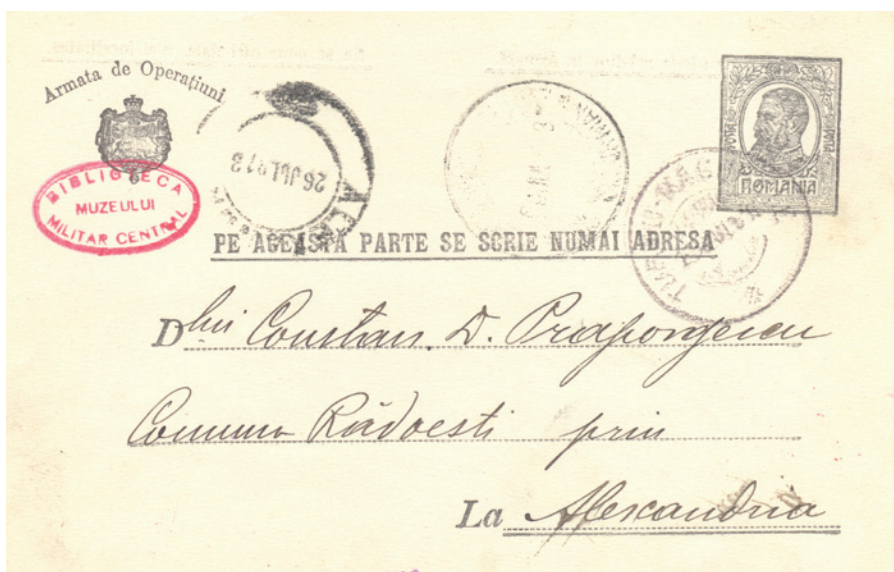 Armata de Operațiuni
BIBLIOTECA
MUZEULUI
MILITAR CENTRAL
26 JUL 913
ALEX
TURNU-MAG
ROMANIA
PE ACEASTA PARTE SE SCRIE NUMAI ADRESA
Dlui Constan. D. Praporgescu
Comuna Rădoesti prin
La Alexandria